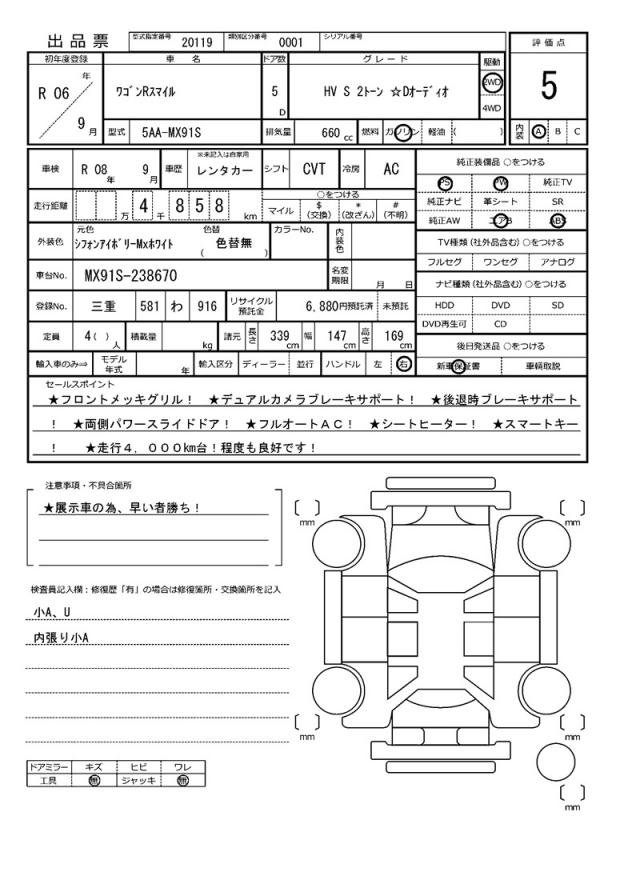 出品票 型式指定番号 20119 類別区分番号 0001 シリアル番号
初年度登録 車名 ドア数 グレード 駆動 評価点
R 06 年 9 月 ワゴンRスマイル 5 D HV S 2トーン ☆Dオーディオ 2WD 4WD 5
型式 5AA-MX91S 排気量 660 cc 燃料 ガソリン 軽油 ( ) 内装 A B C
車検 R 08 年 9 月 車歴 ※未記入は自家用 レンタカー シフト CVT 冷房 AC
純正装備品 ○をつける
PS PW 純正TV
純正ナビ 革シート SR
純正AW エアB ABS
走行距離 万 4 千 8 5 8 km
○をつける
マイル $ (交換) * (改ざん) # (不明)
TV種類 (社外品含む) ○をつける
フルセグ ワンセグ アナログ
外装色 元色 シフォンアイボリーMxホワイト 色替 ( 色替無 ) カラーNo. 内装色
車台No. MX91S-238670 名変期限 月 日
ナビ種類 (社外品含む) ○をつける
HDD DVD SD
DVD再生可 CD
登録No. 三重 581 わ 916 リサイクル預託金 6,880円預託済 未預託
定員 4 ( ) 人 積載量 kg 諸元 長さ 339 cm 幅 147 cm 高さ 169 cm
後日発送品 ○をつける
新車保証書 車輌取説
輸入車のみ⇒ モデル年式 年 輸入区分 ディーラー 並行 ハンドル 左 右
セールスポイント
★フロントメッキグリル! ★デュアルカメラブレーキサポート! ★後退時ブレーキサポート
! ★両側パワースライドドア! ★フルオートAC! ★シートヒーター! ★スマートキー
! ★走行4,000km台!程度も良好です!
注意事項・不具合箇所
★展示車の為、早い者勝ち!
検査員記入欄:修復歴「有」の場合は修復箇所・交換箇所を記入
小A、U
内張り小A
ドアミラー キズ ヒビ ワレ
工具 無 ジャッキ 無
mm
mm
mm
mm
mm